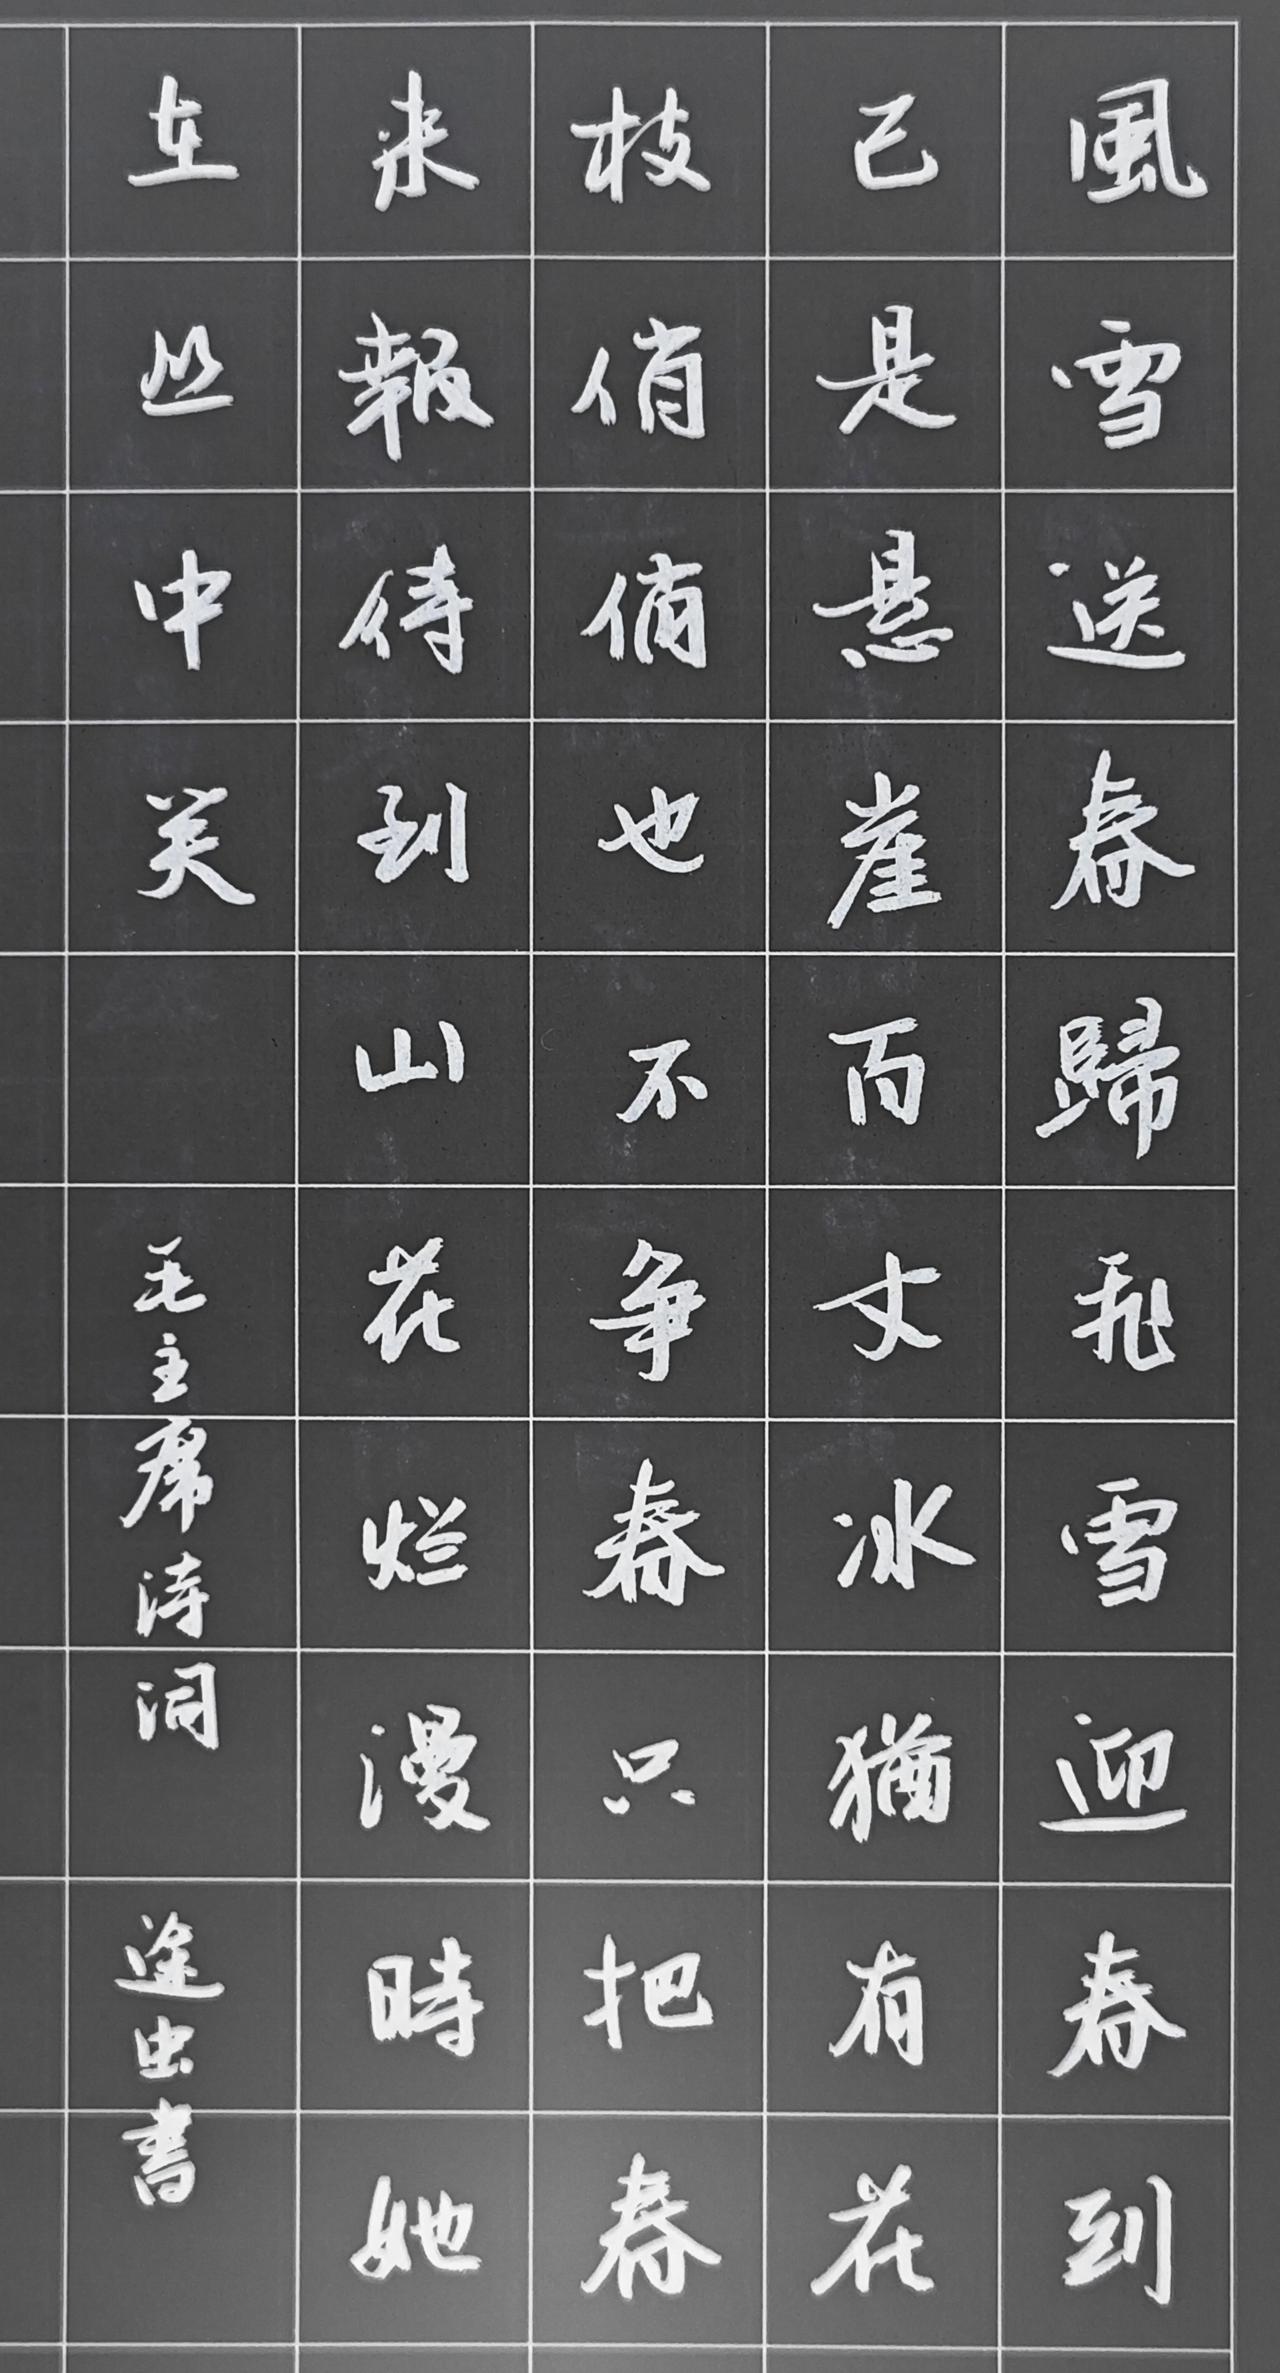 風雪送春歸飛雪迎春到
已是悬崖百丈冰猶有花
枝俏俏也不争春只把春
来報待到山花烂漫時她
在丛中笑 毛主席诗词 途虫書